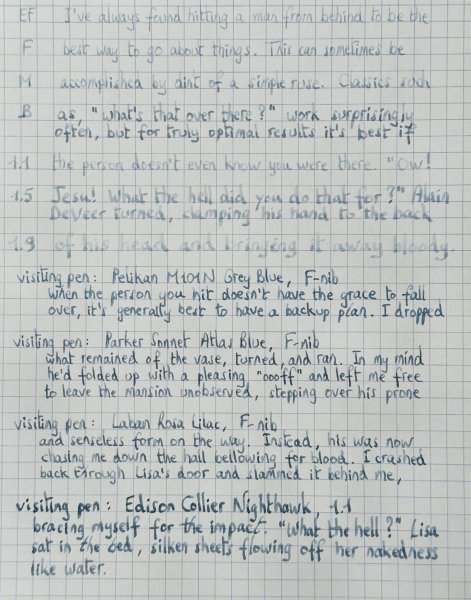 EF I've always found hitting a man from behind to be the
F best way to go about things. This can sometimes be
M accomplished by dint of a simple ruse. Classics such
B as, "what's that over there?" work surprisingly
often, but for truly optimal results it's best if
1.1 the person doesn't even know you were there. "Ow!
1.5 Jesu! What the hell did you do that for?" Alain
DeVeer turned, clamping his hand to the back
1.9 of his head and bringing it away bloody.
visiting pen: Pelikan M101N Grey Blue, F-nib
When the person you hit doesn't have the grace to fall
over, it's generally best to have a backup plan. I dropped
visiting pen: Parker Sonnet Atlas Blue, F-nib
what remained of the vase, turned, and ran. In my mind
he'd folded up with a pleasing "oooff" and left me free
to leave the mansion unobserved, stepping over his prone
visiting pen: Laban Rosa Lilac, F-nib
and senseless form on the way. Instead, his was now
chasing me down the hall bellowing for blood. I crashed
back through Lisa's door and slammed it behind me,
visiting pen: Edison Collier Nighthawk, 1.1
bracing myself for the impact. "What the hell?" Lisa
sat in the bed, silken sheets flowing off her nakedness
like water.